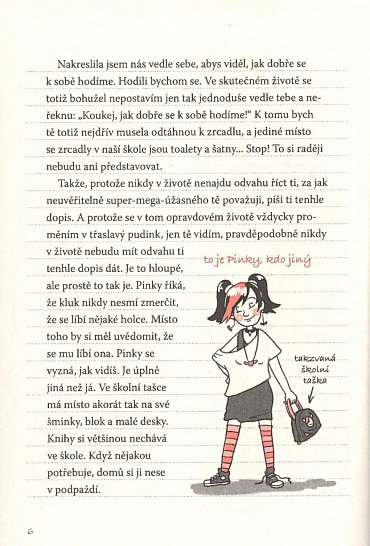 Nakreslila jsem nás vedle sebe, abys viděl, jak dobře se
k sobě hodíme. Hodili bychom se. Ve skutečném životě se
totiž bohužel nepostavím jen tak jednoduše vedle tebe a ne-
řeknu: „Koukej, jak dobře se k sobě hodíme!“ K tomu bych
tě totiž nejdřív musela odtáhnou k zrcadlu, a jediné místo
se zrcadly v naší škole jsou toalety a šatny... Stop! To si raději
nebudu ani představovat.
Takže, protože nikdy v životě nenajdu odvahu říct ti, za jak
neuvěřitelně super-mega-úžasného tě považuji, píši ti tenhle
dopis. A protože se v tom opravdovém životě vždycky pro-
měním v třaslavý pudink, jen tě vidím, pravděpodobně nikdy
v životě nebudu mít odvahu ti
tenhle dopis dát. Je to hloupé,
ale prostě to tak je. Pinky říká,
že kluk nikdy nesmí zmerčit,
že se líbí nějaké holce. Místo
toho by si měl uvědomit, že
se mu líbí ona. Pinky se
vyzná, jak vidíš. Je úplně
jiná než já. Ve školní tašce
má místo akorát tak na své
šminky, blok a malé desky.
Knihy si většinou nechává
ve škole. Když nějakou
potřebuje, domů si ji nese
v podpaždí.
to je Pinky, kdo jiný
takzvaná
školní
taška
6